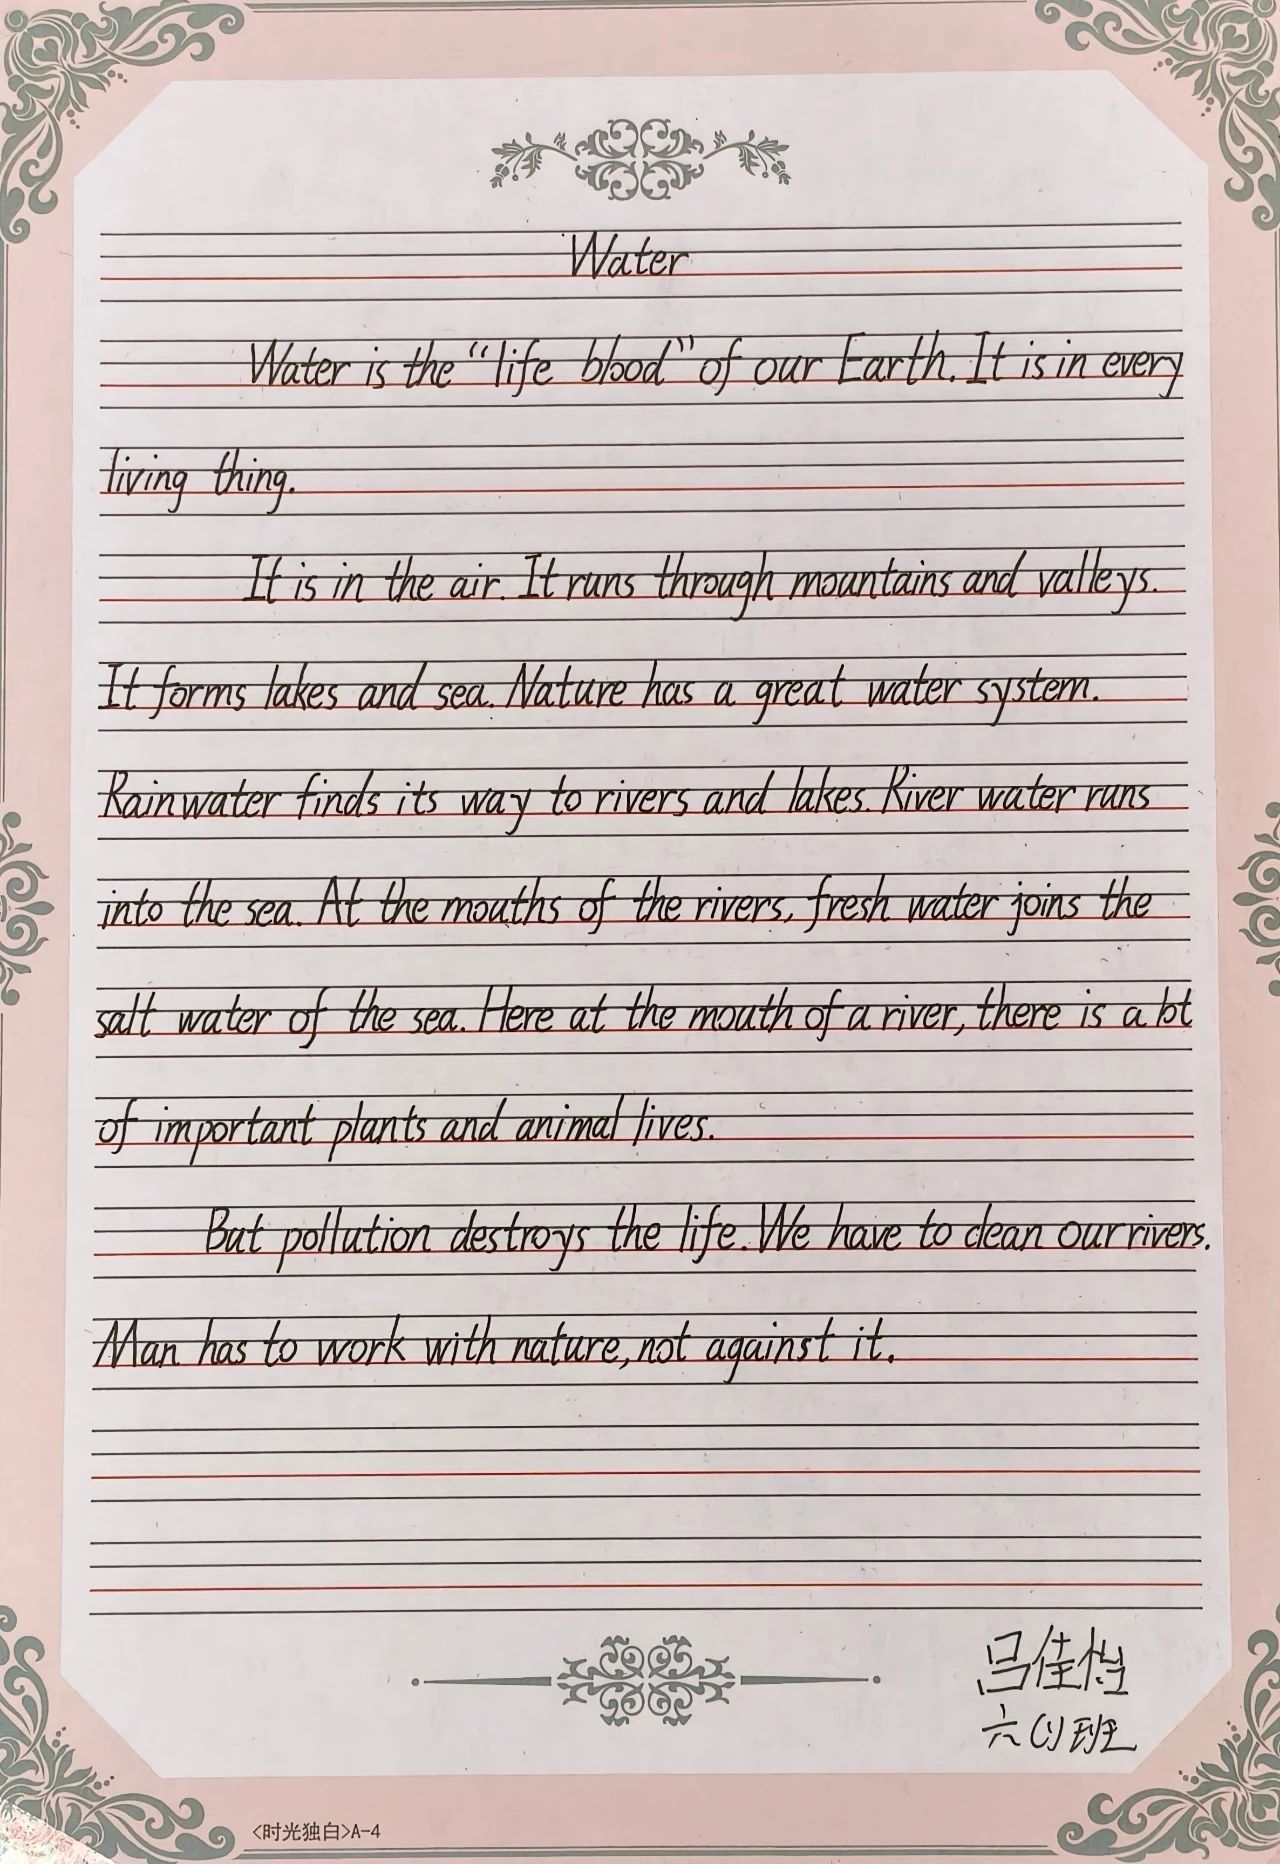 Water
Water is the "life blood" of our Earth. It is in every
living thing.
It is in the air. It runs through mountains and valleys.
It forms lakes and sea. Nature has a great water system.
Rainwater finds its way to rivers and lakes. River water runs
into the sea. At the mouths of the rivers, fresh water joins the
salt water of the sea. Here at the mouth of a river, there is a lot
of important plants and animal lives.
But pollution destroys the life. We have to clean our rivers.
Man has to work with nature, not against it.
吕佳怡
六(1)班
<时光独白>A-4